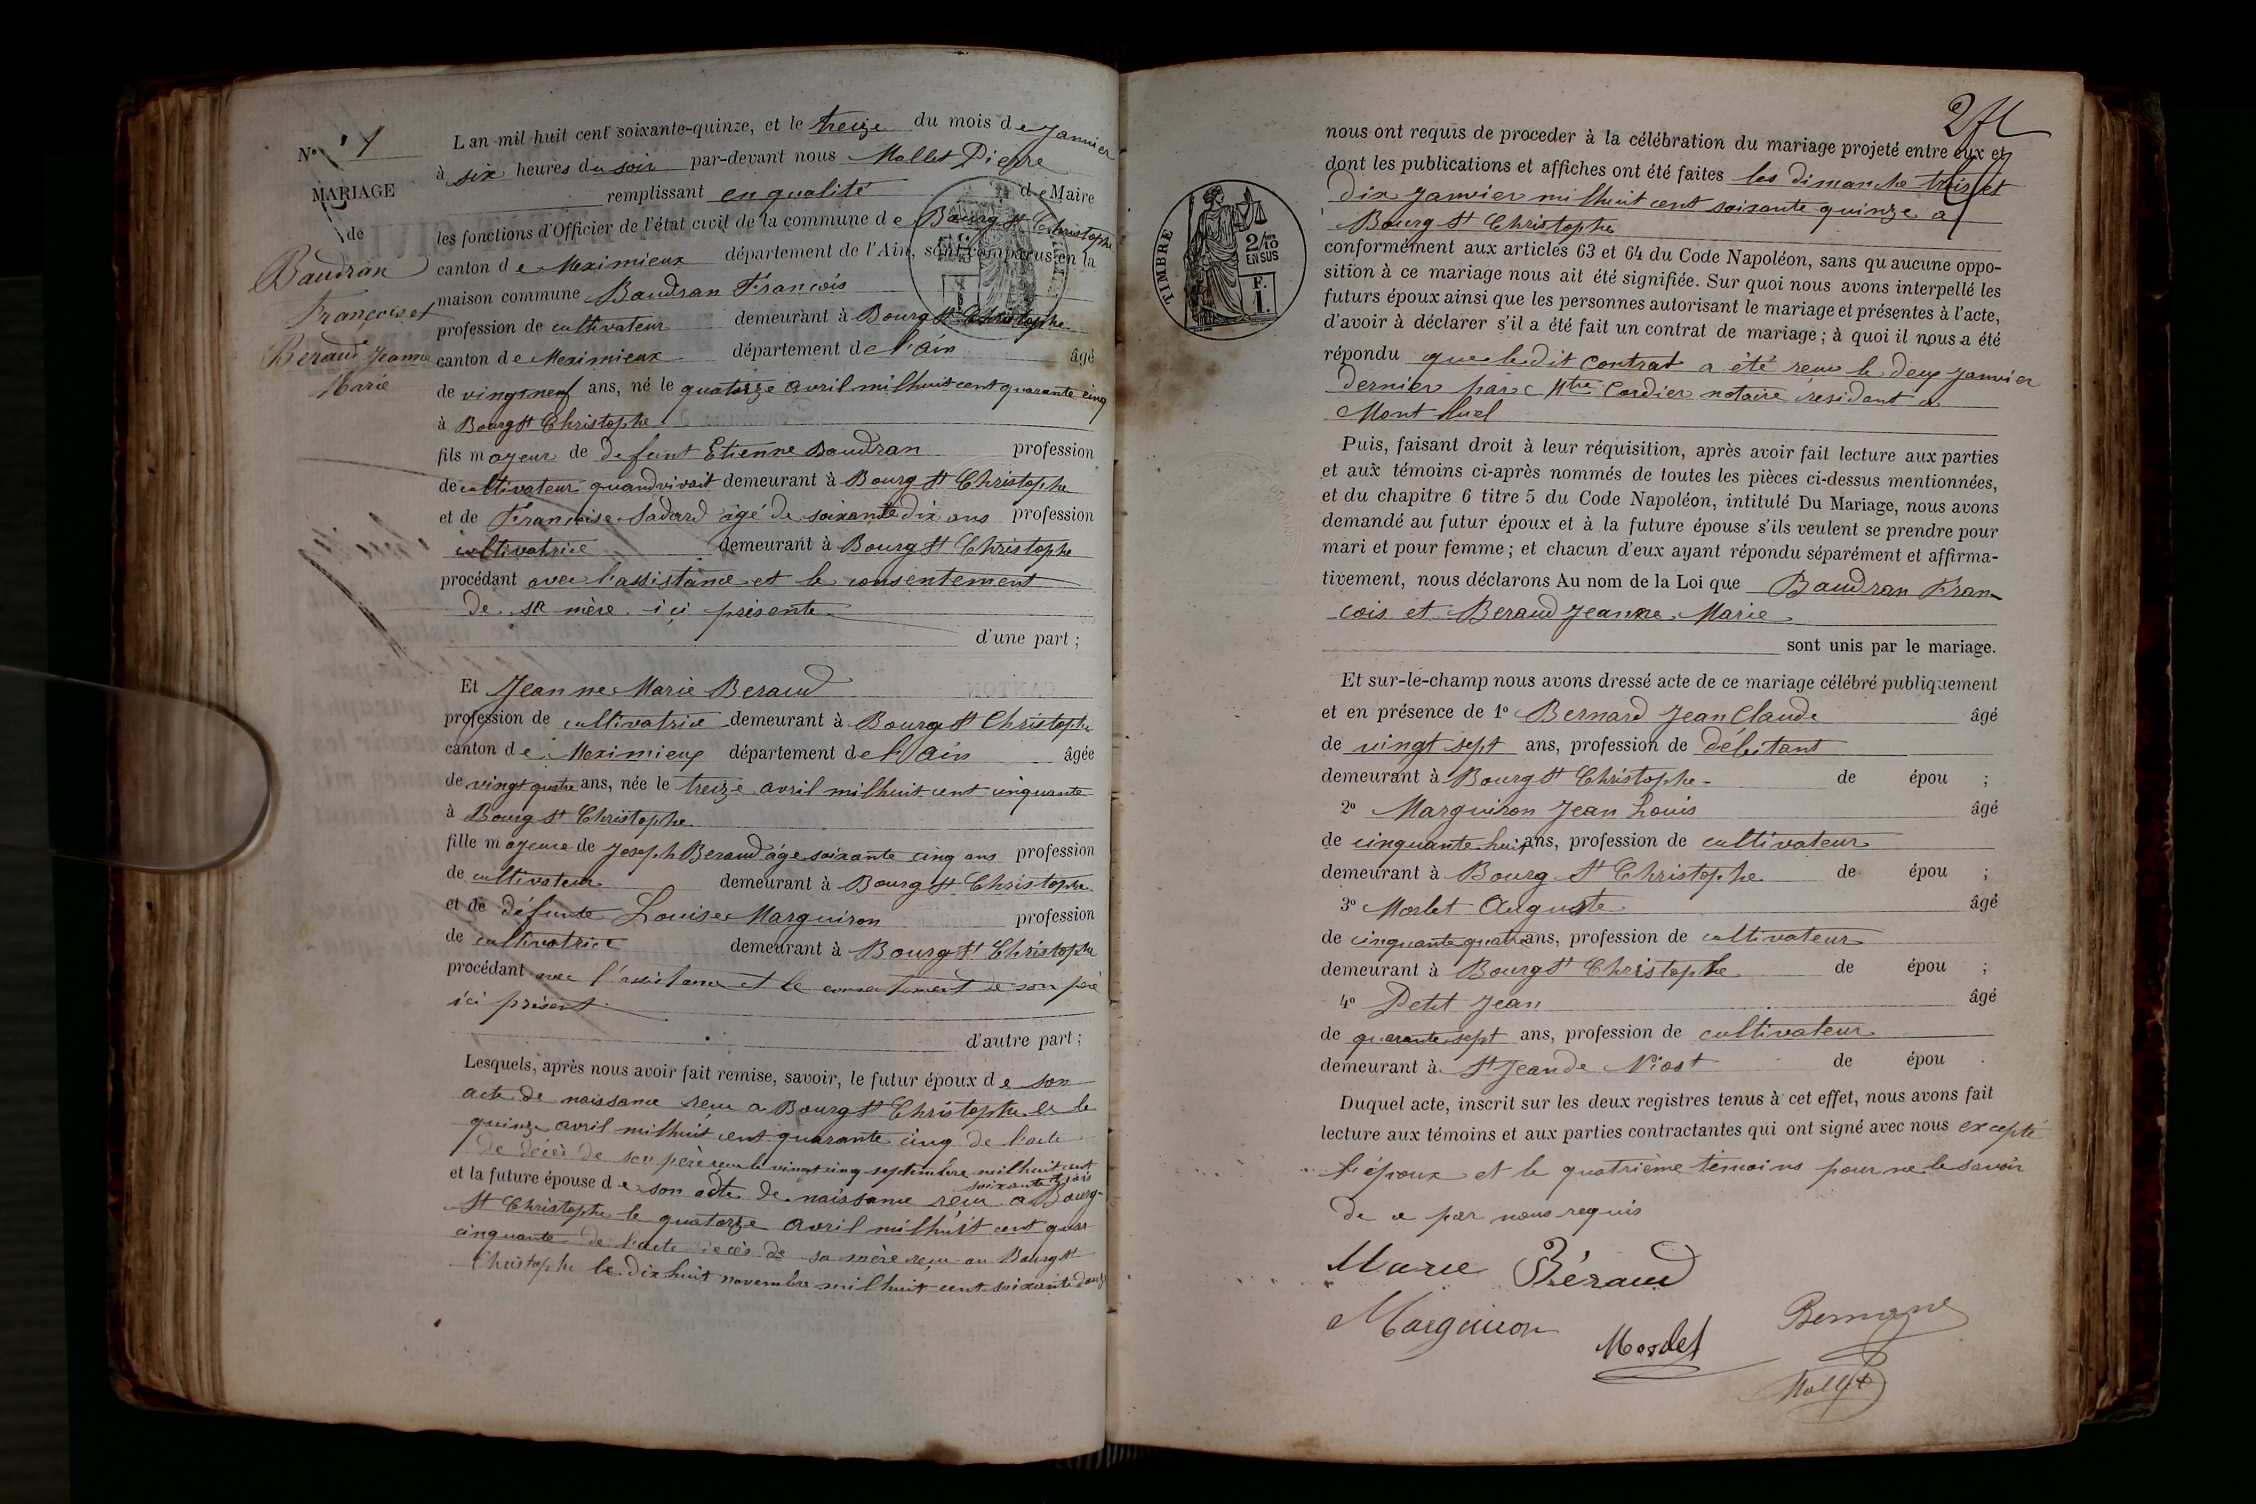 N° 1
MARIAGE
de
Baudran
François et
Beraud Jeanne
Marie
L'an mil huit cent soixante-quinze, et le treize du mois de Janvier
à six heures du soir par-devant nous Mollet Pierre
remplissant en qualité de Maire
les fonctions d'Officier de l'état civil de la commune de Bourg St Christophe
canton de Meximieux département de l'Ain, sont comparus en la
maison commune Baudran François
profession de cultivateur demeurant à Bourg St Christophe
canton de Meximieux département de l'Ain âgé
de vingt neuf ans, né le quatorze avril mil huit cent quarante cinq
à Bourg St Christophe
fils majeur de defunt Etienne Baudran profession
de cultivateur quand vivait demeurant à Bourg St Christophe
et de Françoise Sadard âgé de soixante dix ans profession
cultivatrice demeurant à Bourg St Christophe
procédant avec l'assistance et le consentement
de sa mère ici présente
d'une part ;
Et Jeanne Marie Beraud
profession de cultivatrice demeurant à Bourg St Christophe
canton de Meximieux département de l'Ain âgée
de vingt quatre ans, née le treize avril mil huit cent cinquante
à Bourg St Christophe
fille majeure de Joseph Beraud âgé soixante cinq ans profession
de cultivateur demeurant à Bourg St Christophe
et de défunte Louise Marguiron profession
de cultivatrice demeurant à Bourg St Christophe
procédant avec l'assistance et le consentement de son père
ici présent
d'autre part ;
Lesquels, après nous avoir fait remise, savoir, le futur époux de son
acte de naissance reçu a Bourg St Christophe le
quinze avril mil huit cent quarante cinq de l'acte
de décès de son père reçu le vingt cinq septembre mil huit cent
soixante trois
et la future épouse de son acte de naissance reçu a Bourg
St Christophe le quatorze avril mil huit cent quar
cinquante de l'acte decès de sa mère reçu au Bourg St
Christophe le dix huit novembre mil huit cent soixante douze
271
TIMBRE
2/10 EN SUS
F. 1.
nous ont requis de proceder à la célébration du mariage projeté entre eux et
dont les publications et affiches ont été faites les dimanche trois et
dix Janvier mil huit cent soixante quinze a
Bourg St Christophe
conformément aux articles 63 et 64 du Code Napoléon, sans qu'aucune oppo-
sition à ce mariage nous ait été signifiée. Sur quoi nous avons interpellé les
futurs époux ainsi que les personnes autorisant le mariage et présentes à l'acte,
d'avoir à déclarer s'il a été fait un contrat de mariage ; à quoi il nous a été
répondu que le dit contrat a été reçu le deux Janvier
dernier par Mtre Cordier notaire résidant a
Mont luel
Puis, faisant droit à leur réquisition, après avoir fait lecture aux parties
et aux témoins ci-après nommés de toutes les pièces ci-dessus mentionnées,
et du chapitre 6 titre 5 du Code Napoléon, intitulé Du Mariage, nous avons
demandé au futur époux et à la future épouse s'ils veulent se prendre pour
mari et pour femme ; et chacun d'eux ayant répondu séparément et affirma-
tivement, nous déclarons Au nom de la Loi que Baudran Fran-
cois et Beraud Jeanne Marie
sont unis par le mariage.
Et sur-le-champ nous avons dressé acte de ce mariage célébré publiquement
et en présence de 1° Bernard Jean Claude âgé
de vingt sept ans, profession de débitant
demeurant à Bourg St Christophe de épou ;
2° Marguiron Jean Louis âgé
de cinquante huit ans, profession de cultivateur
demeurant à Bourg St Christophe de épou ;
3° Morlet Auguste âgé
de cinquante quatre ans, profession de cultivateur
demeurant à Bourg St Christophe de épou ;
4° Petit Jean âgé
de quarante sept ans, profession de cultivateur
demeurant à St Jean de Niost de épou .
Duquel acte, inscrit sur les deux registres tenus à cet effet, nous avons fait
lecture aux témoins et aux parties contractantes qui ont signé avec nous excepté
l'époux et le quatrième témoins pour ne le savoir
de ce par nous requis
Marie Béraud
Marguiron Morlet
Mollet